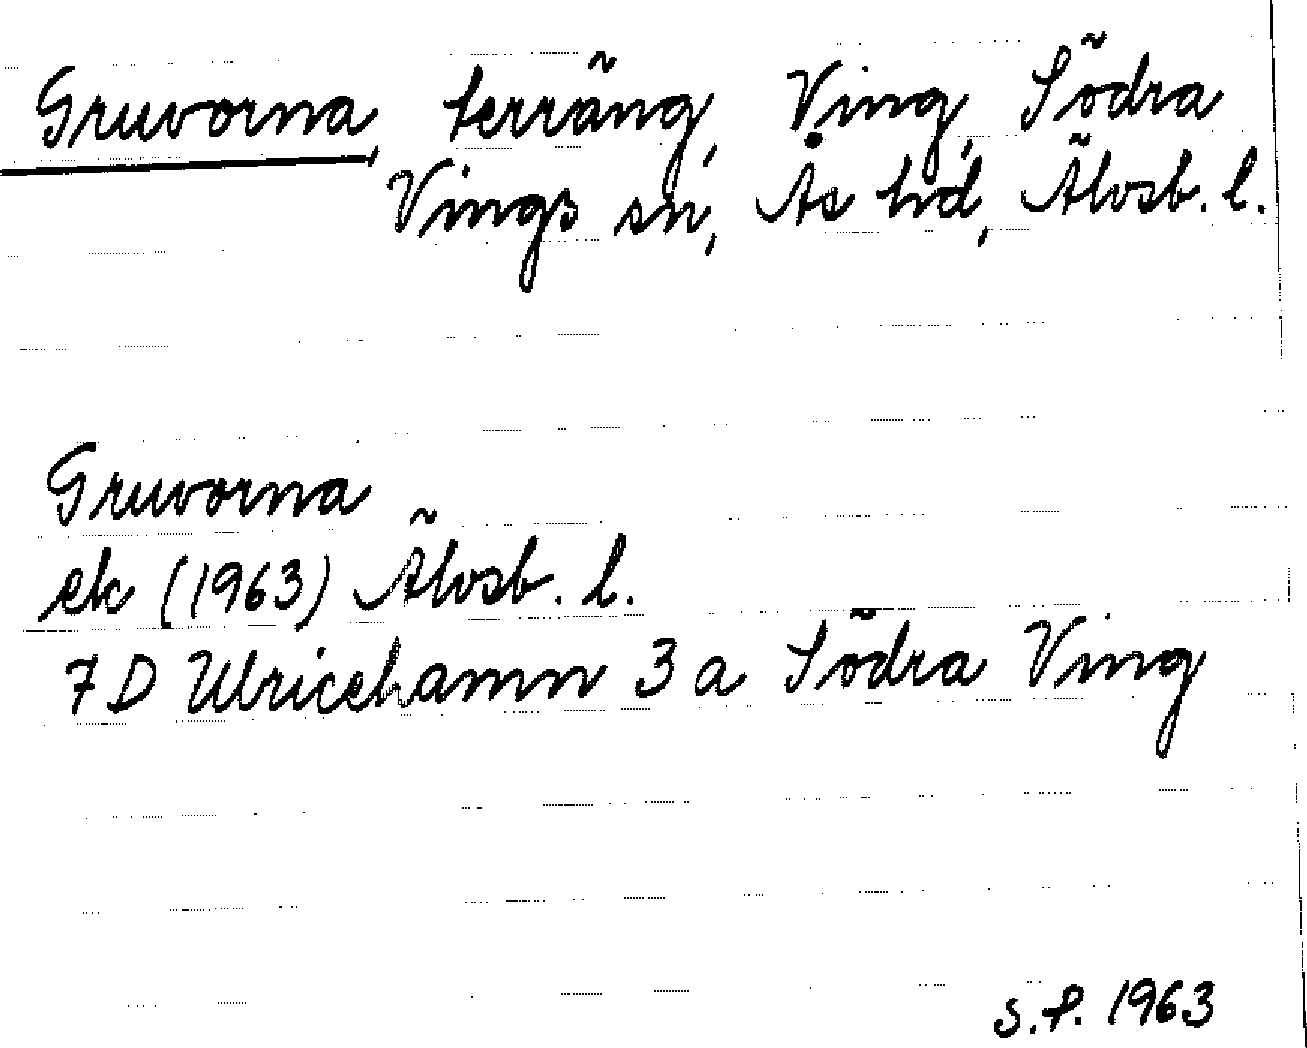 Gruvorna, terräng, Ving, Södra
Vings sn, Ås hd, Älvsb. l.
Gruvorna
ek (1963) Älvsb. l.
7 D Ulricehamn 3 a Södra Ving
S.P. 1963